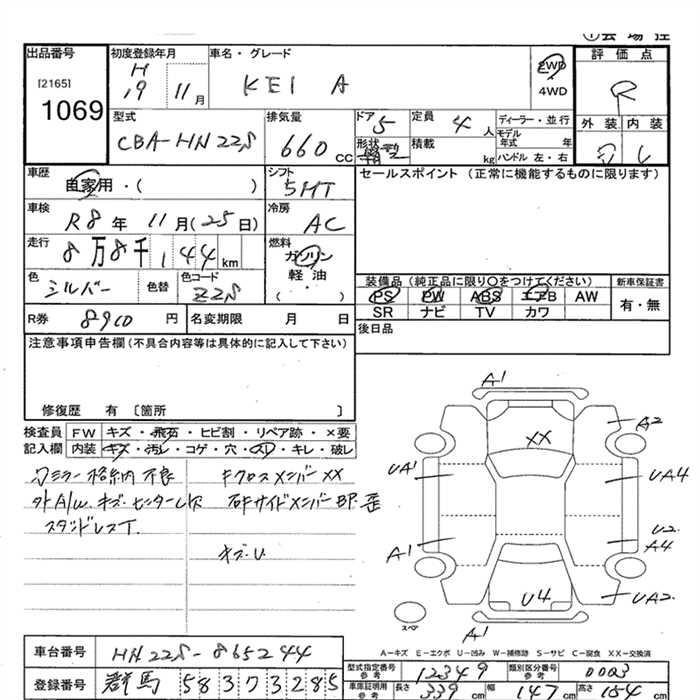 出品番号
[2165]
1069
初度登録年月
H
19 11月
車名・グレード
KEI A
2WD
4WD
評価点
R
外装 内装
型式
CBA-HN22S
排気量
660 CC
ドア 5
形状
定員 4 人
積載 kg
ディーラー・並行
モデル年式 年
ハンドル 左・右
車歴
自家用・( )
シフト
5MT
セールスポイント (正常に機能するものに限ります)
車検
R8年 11月(25日)
冷房
AC
走行
8万8千144km
燃料
ガソリン
軽油
( )
色
シルバー
色替
色コード
Z2S
装備品 (純正品に限り○をつけてください)
新車保証書
PS PW ABS エアB AW
SR ナビ TV カワ
有・無
R券 8910 円
名変期限 月 日
後日品
注意事項申告欄(不具合内容等は具体的に記入して下さい)
修復歴 有 〔箇所 〕
検査員 FW キズ・飛石・ヒビ割・リペア跡・×要
記入欄 内装 キズ・汚レ・コゲ・穴・スレ・キレ・破レ
カミラー格納不良
外A/W.キズ.センターし欠
スタッドレスT.
Fクロスメンバー XX
右FサイドメンバーBP.歪
キズ.U
A1
A2
XX
UA1
UA4
A1
U2
A4
U4
UA2
A1
スペア
A-キズ E-エクボ U-凹み W-補修跡 S-サビ C-腐食 XX-交換済
車台番号 HN22S-865244
登録番号 群馬 583 す 3285
型式指定番号 参考 12349
類別区分番号 参考 0003
車庫証明用 参考 長さ 339 cm 幅 147 cm 高さ 154 cm